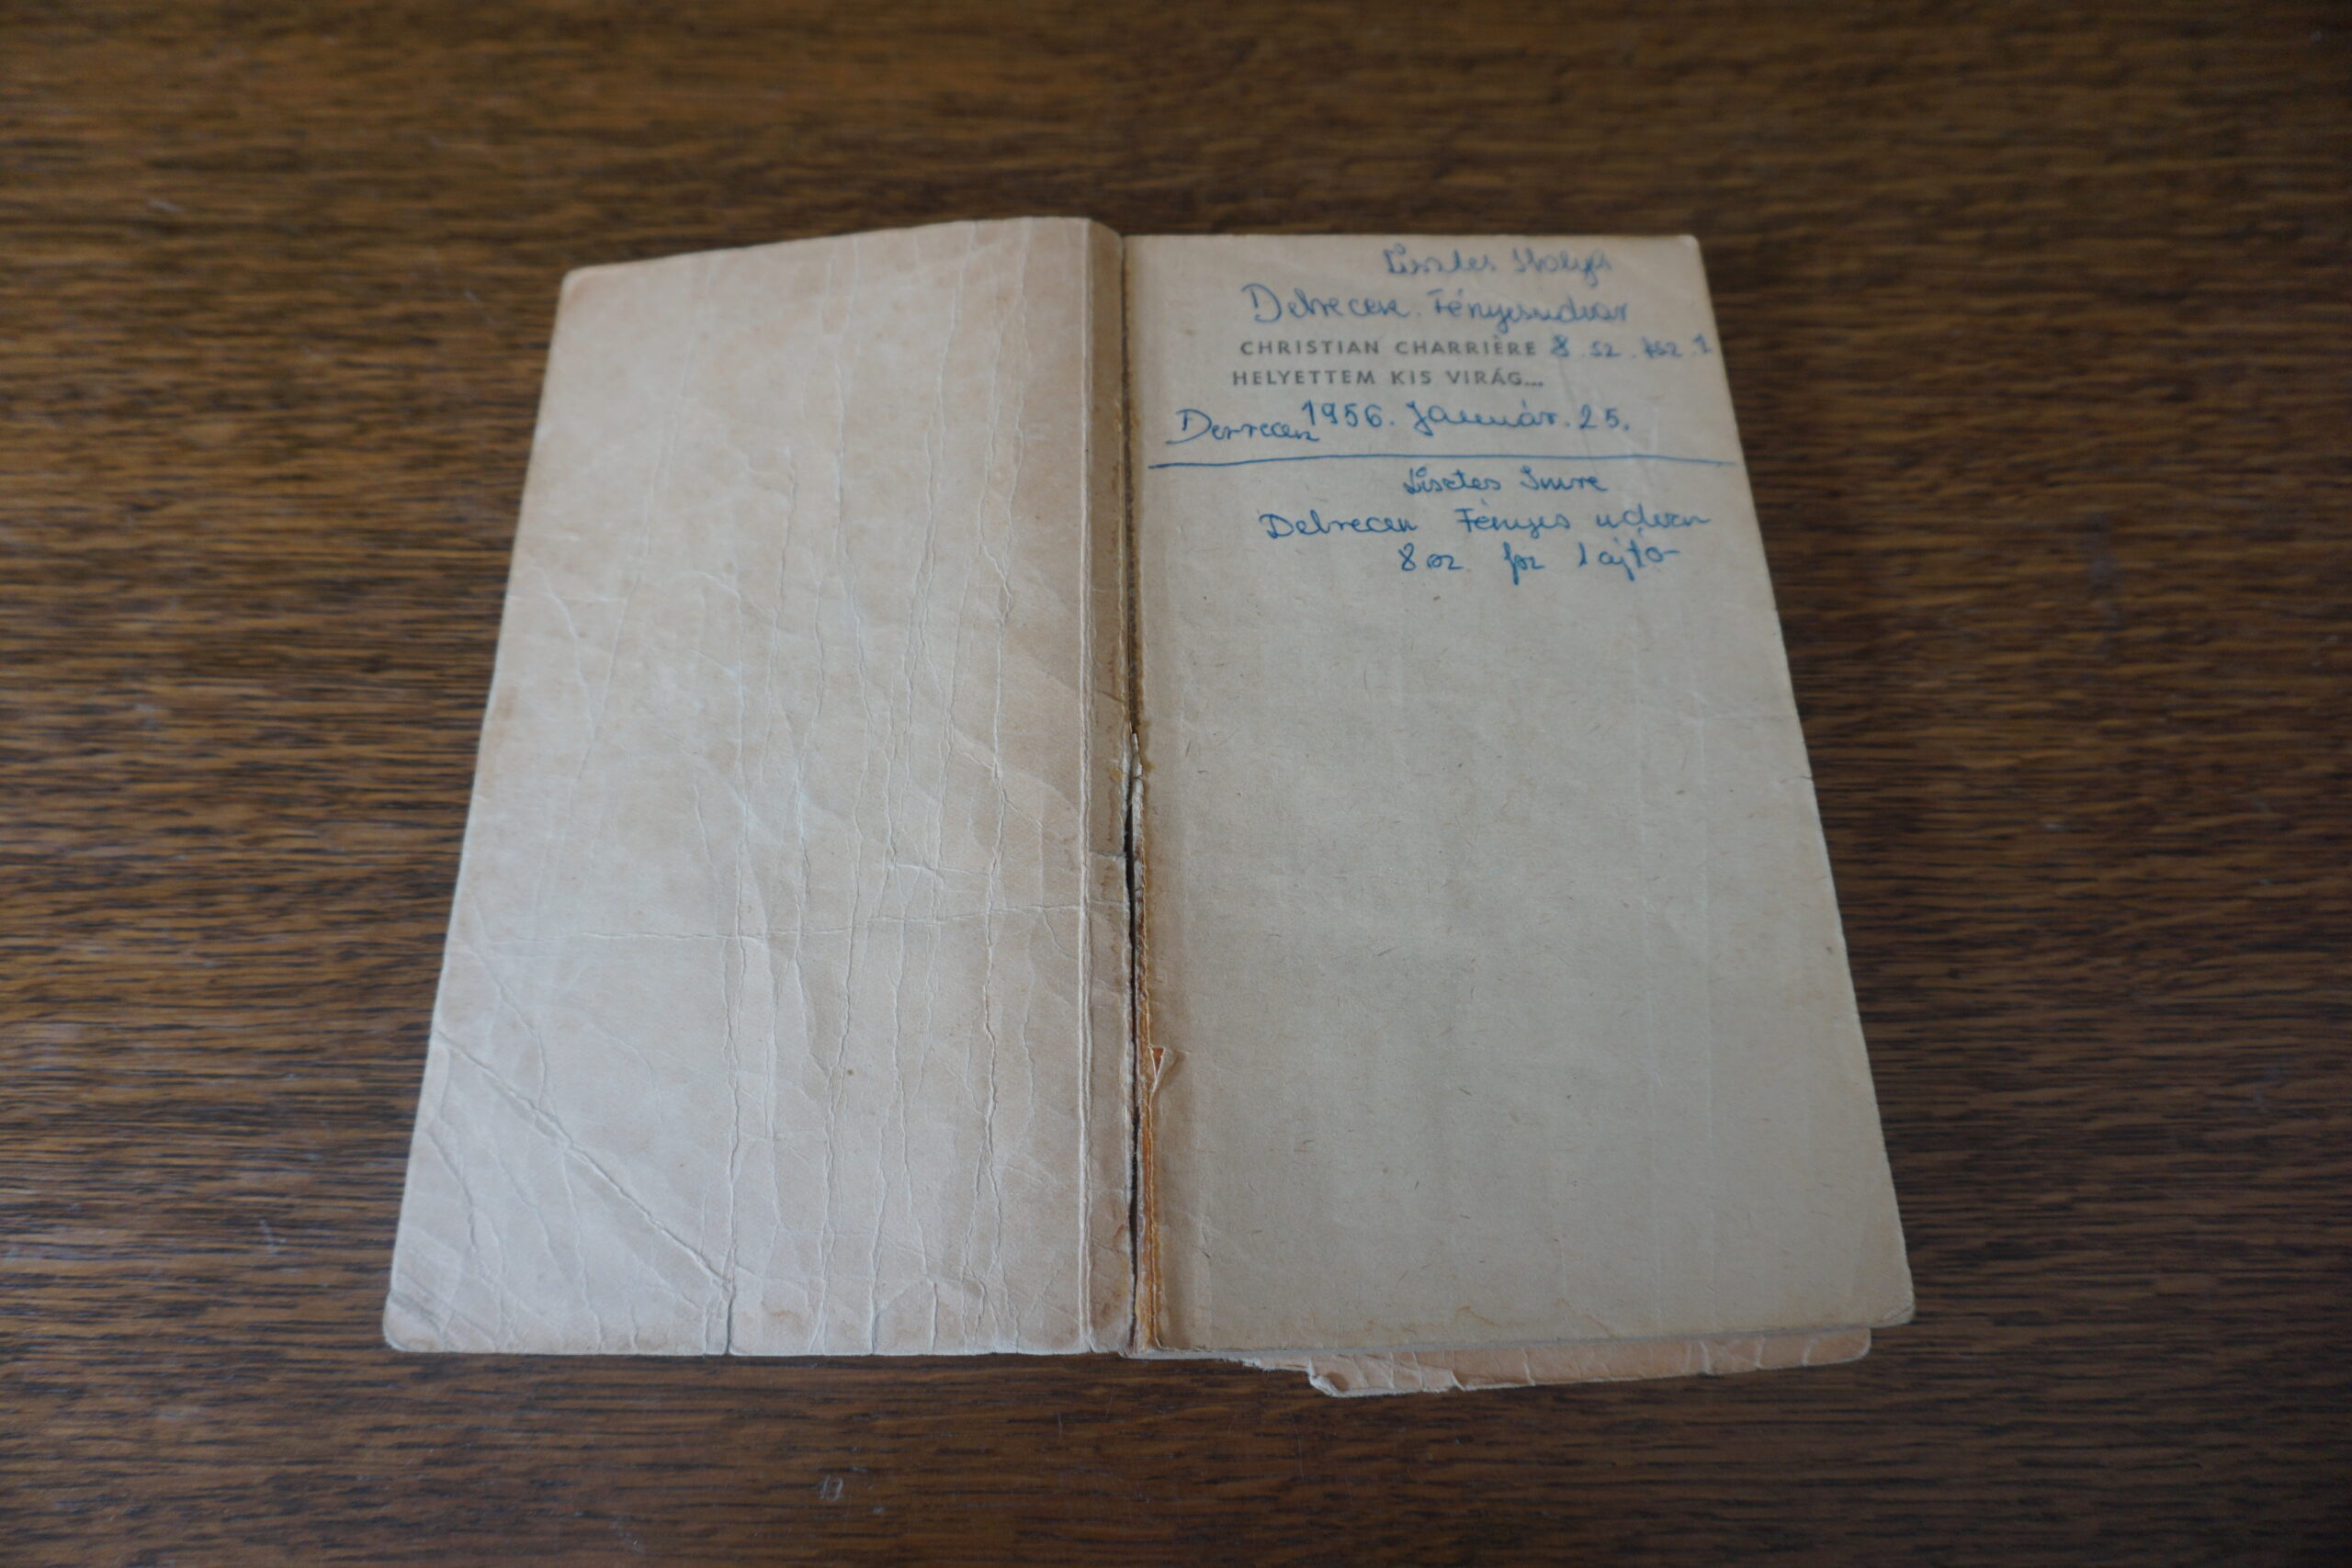 Lisztes Ibolya
Debrecen. Fényesudvar
CHRISTIAN CHARRIÈRE 8. sz. fsz 1
HELYETTEM KIS VIRÁG...
1956. Január. 25.
Lisztes Imre
Debrecen Fényes udvar
8 sz fsz 1 ajtó